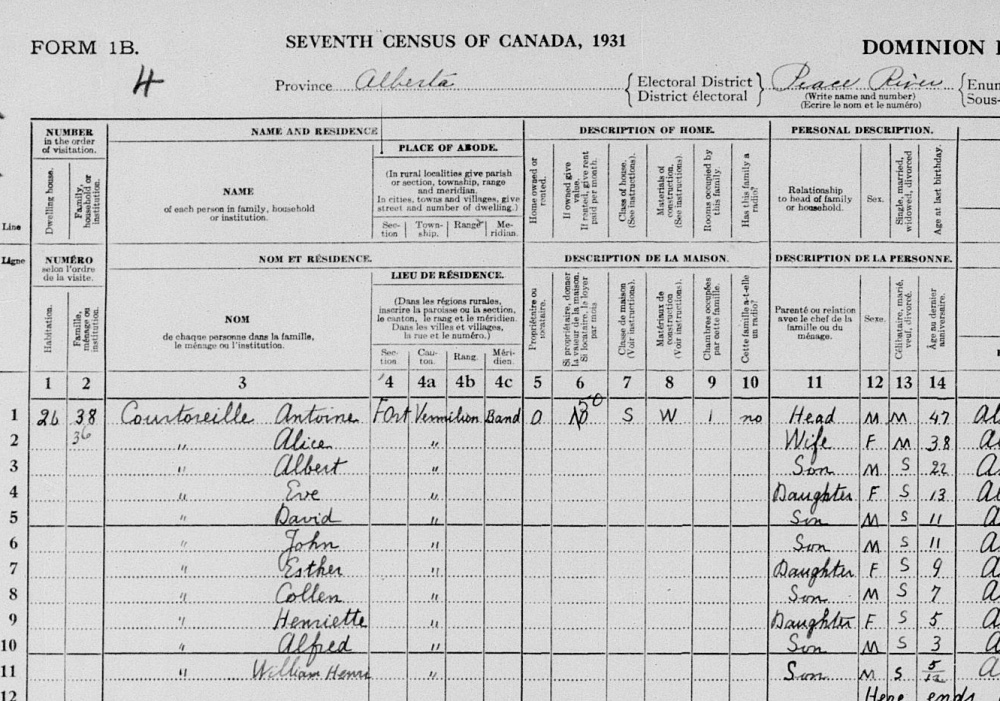 FORM 1B.
SEVENTH CENSUS OF CANADA, 1931
DOMINION
4
Province Alberta
Electoral District
District électoral
Peace River
(Write name and number)
(Ecrire le nom et le numéro)
Enum
Sous-
NUMBER
in the order
of visitation.
NAME AND RESIDENCE
DESCRIPTION OF HOME.
PERSONAL DESCRIPTION.
Line
Dwelling house.
Family, household or institution.
NAME
of each person in family, household
or institution.
PLACE OF ABODE.
(In rural localities give parish
or section, township, range
and meridian.
In cities, towns and villages, give
street and number of dwelling.)
Sec-
tion
Town-
ship.
Range
Me-
ridian.
Home owned or rented.
If owned give value. If rented, give rent paid per month.
Class of house. (See instructions).
Materials of construction. (See instructions).
Rooms occupied by this family.
Has this family a radio?
Relationship
to head of family
or household.
Sex.
Single, married, widowed, divorced
Age at last birthday.
Ligne
NUMÉRO
selon l'ordre
de la visite.
NOM ET RÉSIDENCE.
DESCRIPTION DE LA MAISON.
DESCRIPTION DE LA PERSONNE.
Habitation.
Famille, ménage ou institution.
NOM
de chaque personne dans la famille,
le ménage ou l'institution.
LIEU DE RÉSIDENCE.
(Dans les régions rurales,
inscrire la paroisse ou la section,
le canton, le rang et le méridien.
Dans les villes et villages,
la rue et le numéro.)
Sec-
tion
Can-
ton.
Rang.
Méri-
dien.
Propriétaire ou locataire.
Si propriétaire, donner la valeur de la maison. Si locataire, le loyer par mois
Classe de maison (Voir instructions).
Matériaux de construction. (Voir instructions).
Chambres occupées par cette famille.
Cette famille a-t-elle un radio?
Parenté ou relation
avec le chef de la
famille ou du
ménage.
Sexe.
Célibataire, marié, veuf, divorcé.
Âge au dernier anniversaire.
1 2 3 4 4a 4b 4c 5 6 7 8 9 10 11 12 13 14
1 26 38 Courtoreille Antoine Fort Vermilion Band O S W 1 no Head M M 47
2 36 " Alice " Wife F M 38
3 " Albert " Son M S 22
4 " Eve " Daughter F S 13
5 " David " Son M S 11
6 " John " Son M S 11
7 " Esther " Daughter F S 9
8 " Collen " Son M S 7
9 " Henriette " Daughter F S 5
10 " Alfred " Son M S 3
11 " William Henri " Son M S 5/12
12 Here ends